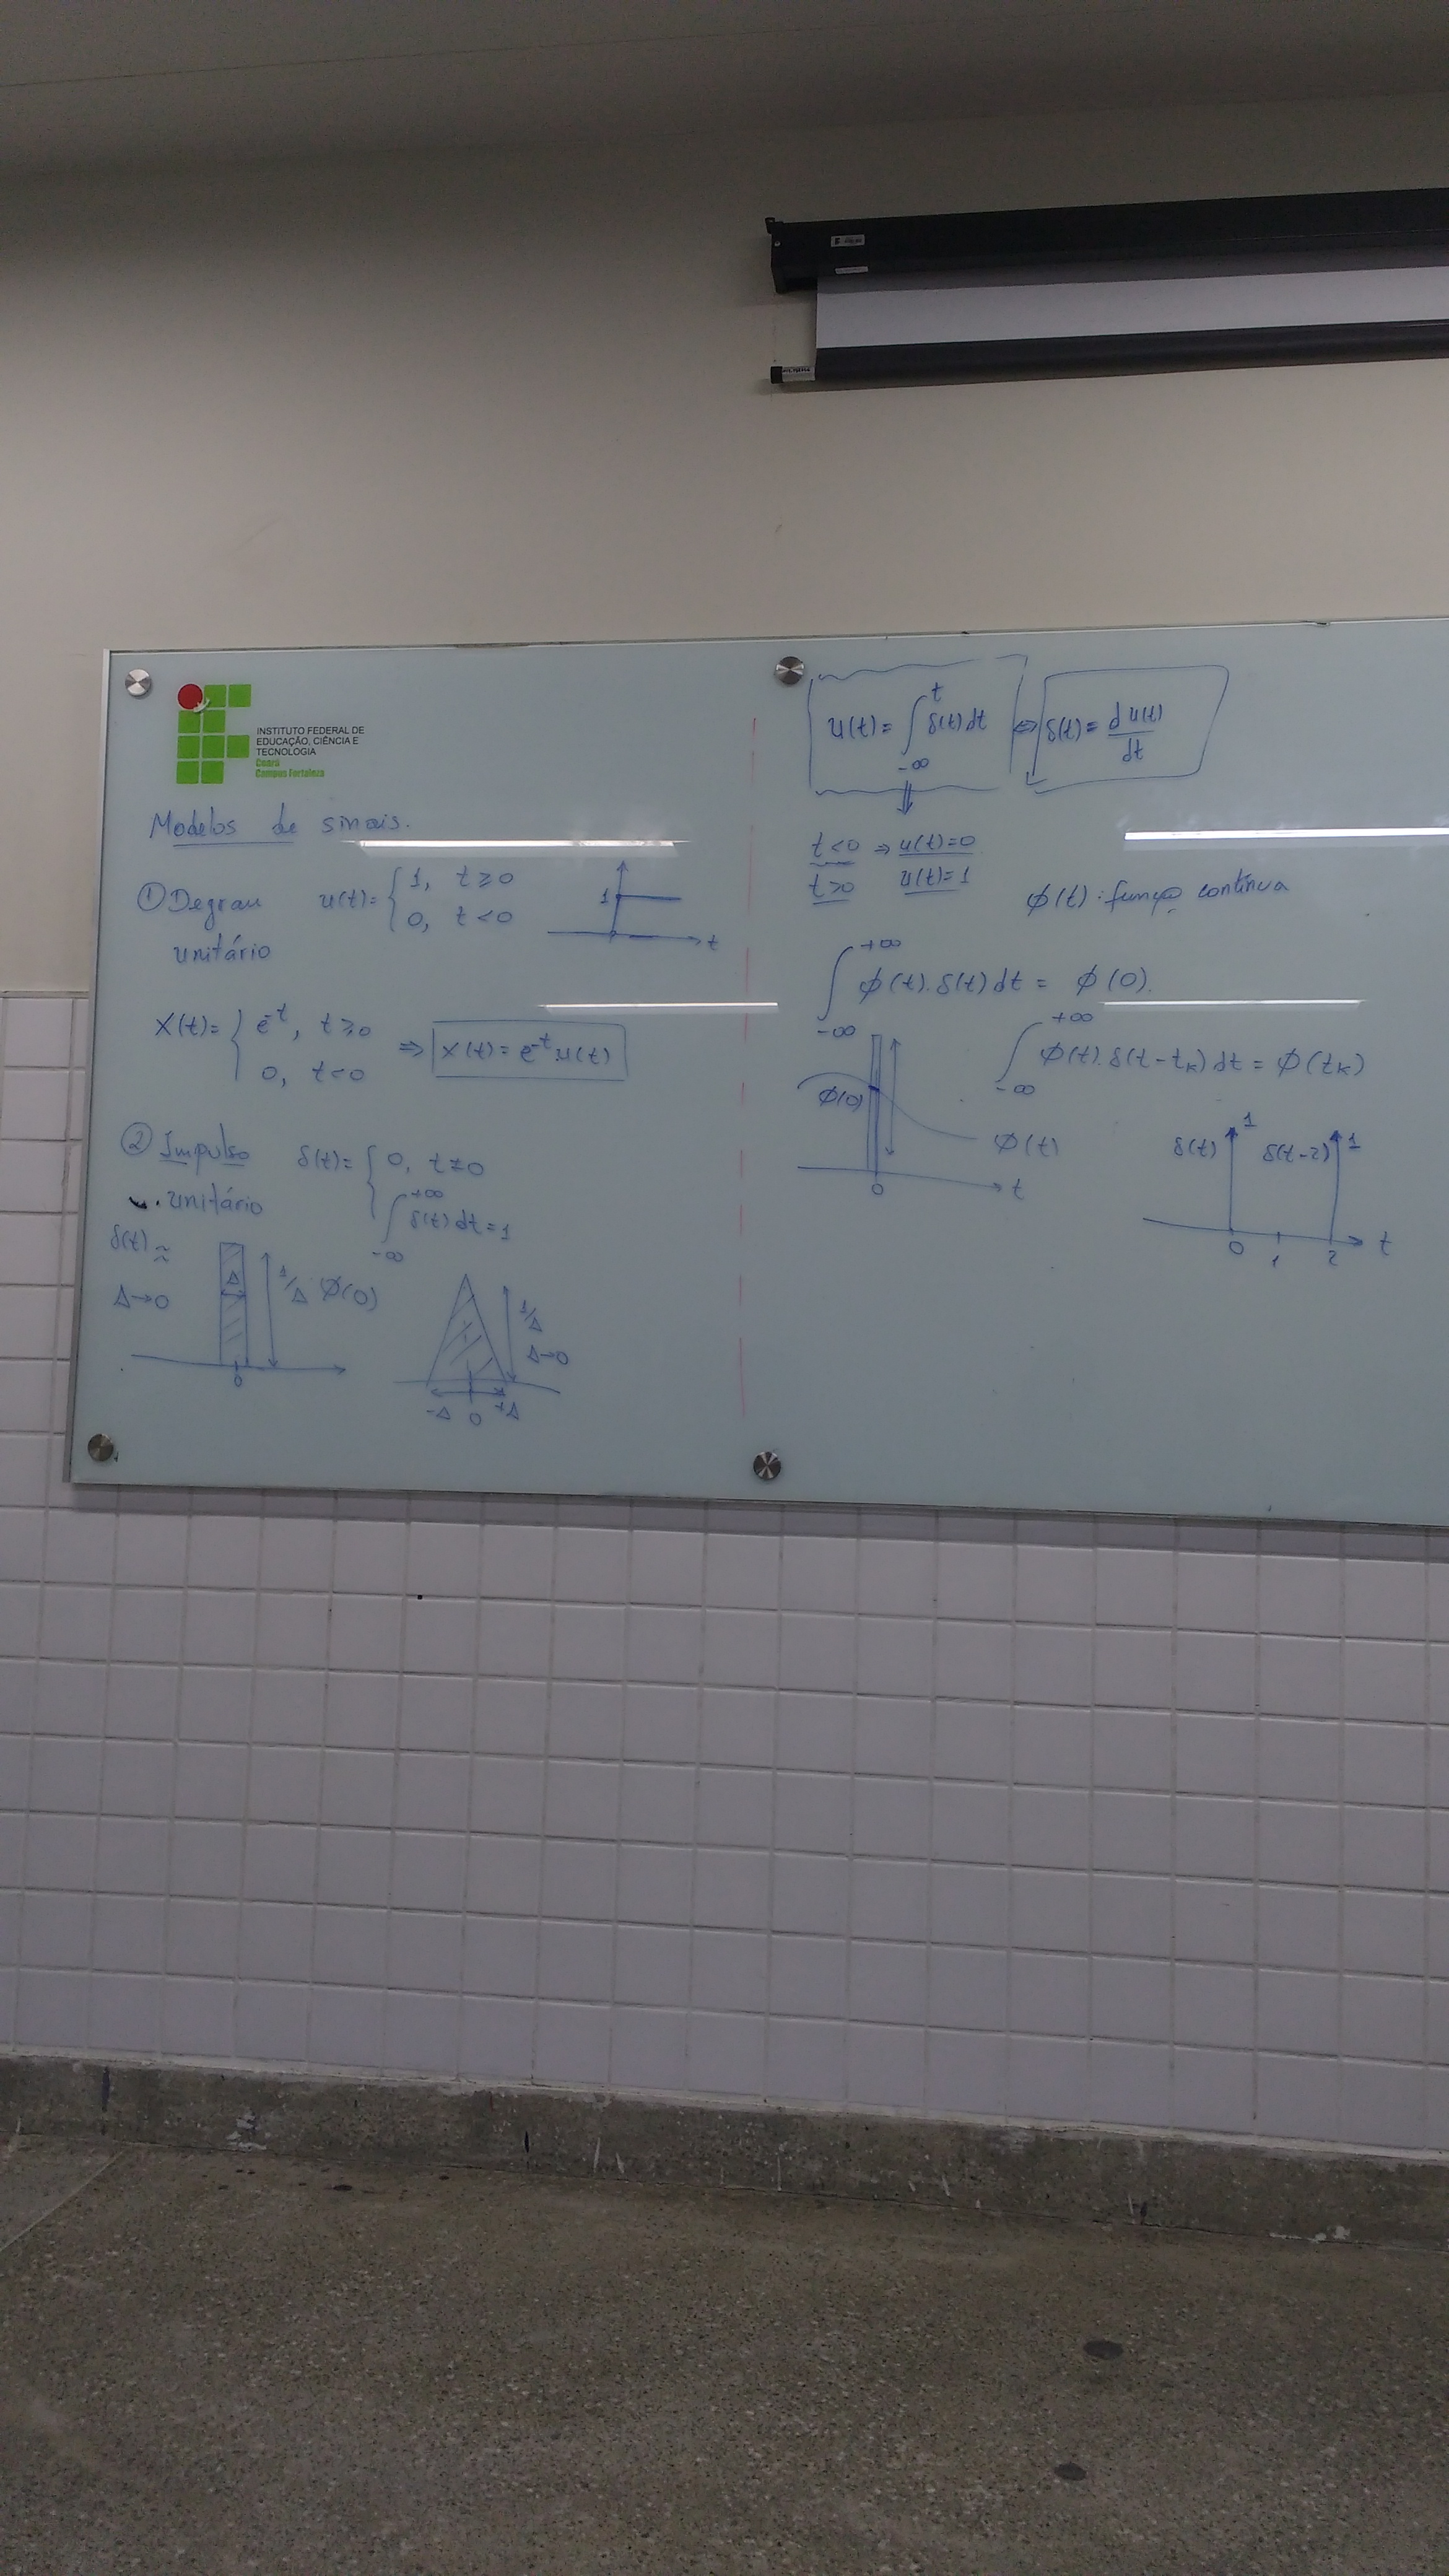 INSTITUTO FEDERAL DE
EDUCAÇÃO, CIÊNCIA E
TECNOLOGIA
Ceará
Campus Fortaleza
Modelos de sinais.
① Degrau unitário
u(t)= { 1, t≥0
0, t<0
1
t
x(t)= { e^-t, t≥0
0, t<0
⇒ x(t)= e^-t.u(t)
② Impulso
unitário
δ(t)= { 0, t≠0
∫_-∞^+∞ δ(t) dt=1
δ(t) ≈
Δ→0
Δ
1/Δ
ϕ(0)
0
1/Δ
Δ→0
-Δ 0 +Δ
u(t)= ∫_-∞^t δ(t) dt ⇔ δ(t)= d u(t)/dt
⇓
t<0 ⇒ u(t)=0
t>0 u(t)=1
ϕ(t): função contínua
∫_-∞^+∞ ϕ(t).δ(t) dt = ϕ(0).
∫_-∞^+∞ ϕ(t).δ(t-tₖ) dt = ϕ(tₖ)
ϕ(0)
ϕ(t)
0 t
δ(t) 1 δ(t-2) 1
0 1 2 t